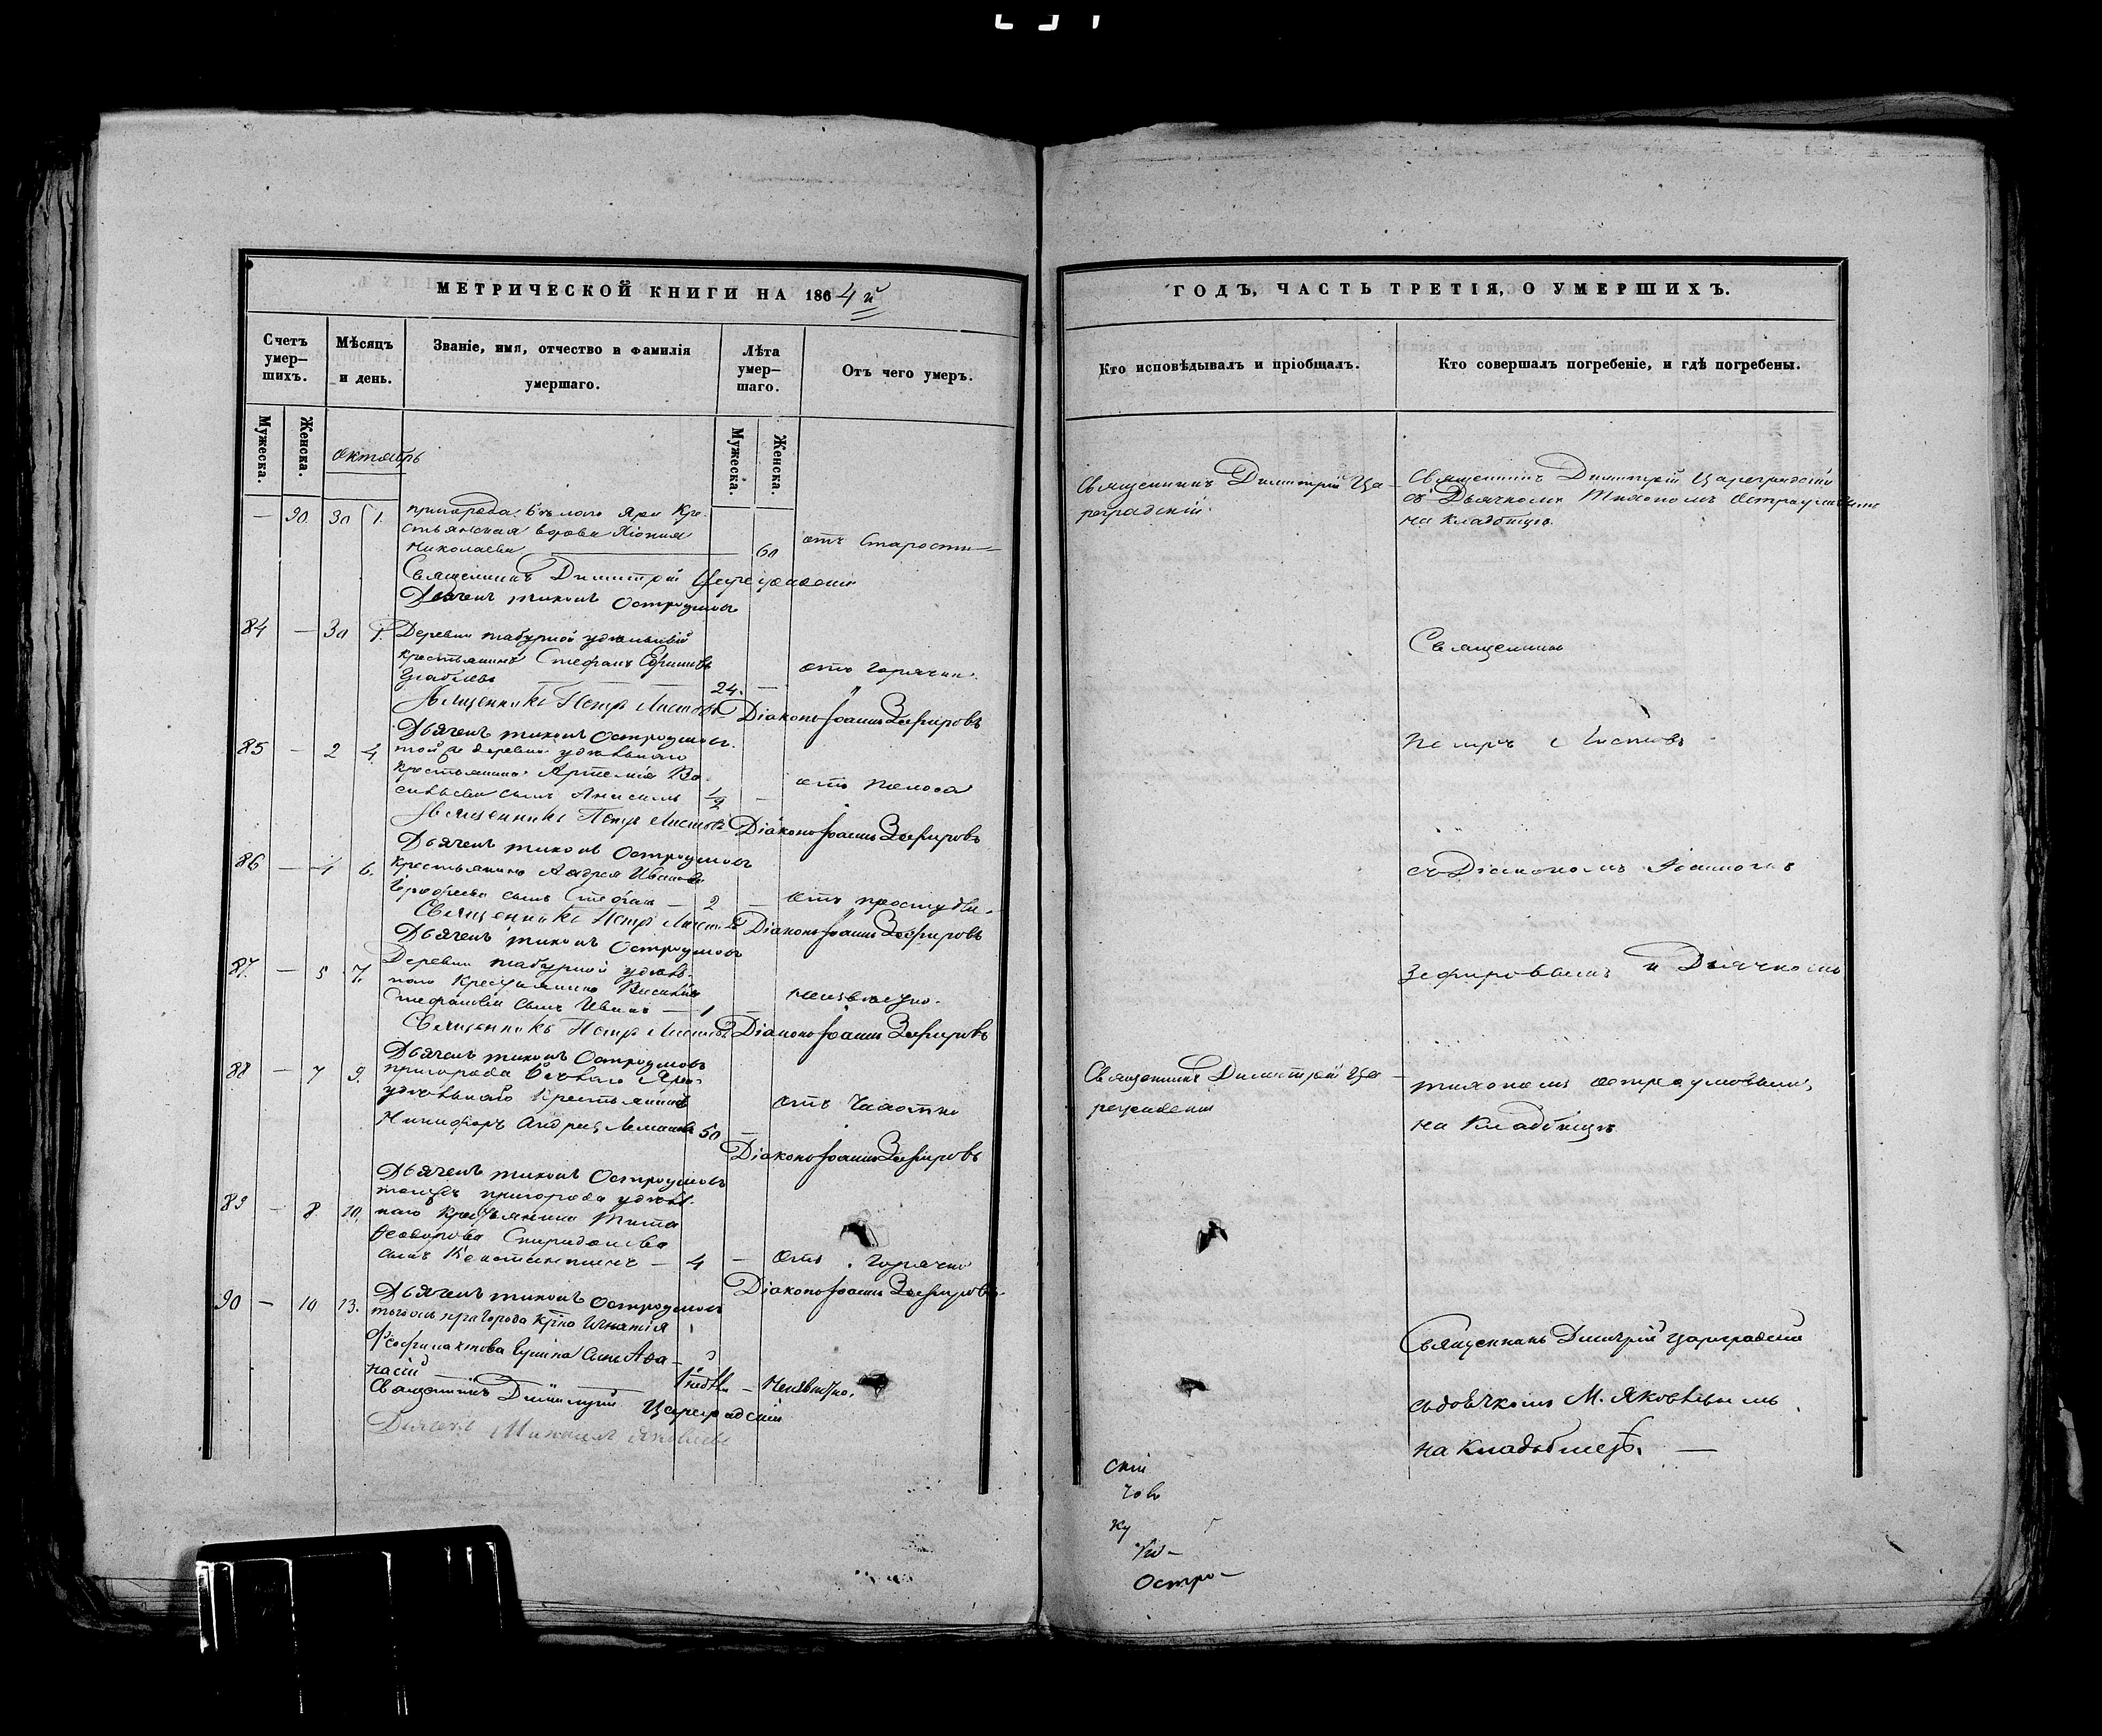 МЕТРИЧЕСКОЙ КНИГИ НА 1864й
Счетъ умер— шихъ.
Мѣсяцъ и день.
Званіе, имя, отчество и фамилія умершаго.
Лѣта умер— шаго.
Отъ чего умеръ.
Мужеска.
Женска.
Мужеска.
Женска.
Октябрь
— 90. 30 1. пригорода Бѣлаго Яра Кре-
стьянская вдова
Николаева 60 отъ Старости
Священникъ Димитрій
Дьячекъ Тихонъ Остроумовъ
84 — 30 1. Деревни удѣльный
крестьянинъ Стефанъ
24. — отъ горячки.
Священникъ Петръ Листовъ Діаконъ Іоаннъ Зефировъ
Дьячекъ Тихонъ Остроумовъ.
85 — 2 4. той же деревни удѣльнаго
крестьянина Артемія Ва-
сильева сынъ 1/2 — отъ поноса
Священникъ Петръ Листовъ Діаконъ Іоаннъ Зефировъ
Дьячекъ Тихонъ Остроумовъ
86 — 4 6. крестьянина Андрея Иванова
сынъ Стефанъ — 2 — отъ простуды.
Священникъ Петръ Листовъ Діаконъ Іоаннъ Зефировъ
Дьячекъ Тихонъ Остроумовъ
87. — 5 7. Деревни удѣль-
наго крестьянина Василія
Стефанова сынъ Иванъ — 1 — неизвѣстно.
Священникъ Петръ Листовъ Діаконъ Іоаннъ Зефировъ
Дьячекъ Тихонъ Остроумовъ
88 — 7 9. пригорода Бѣлаго Яра
удѣльнаго крестьянина
Никифоръ 50 — отъ
Діаконъ Іоаннъ Зефировъ
Дьячекъ Тихонъ Остроумовъ
89 — 8 10. пригорода удѣль-
наго крестьянина Тита
Ѳеодорова Спиридонова
сынъ Константинъ — 4 — отъ горячки
Діаконъ Іоаннъ Зефировъ
Дьячекъ Тихонъ Остроумовъ
90 — 10 13. пригорода Игнатія
сынъ Аѳа-
насій — неизвѣстно.
Священникъ Димитрій Цареградскій
Дьячекъ Михаилъ Яковлевъ
ГОДЪ, ЧАСТЬ ТРЕТІЯ, О УМЕРШИХЪ.
Кто исповѣдывалъ и пріобщалъ.
Кто совершалъ погребеніе, и гдѣ погребены.
Священникъ Димитрій Ца-
реградскій.
Священникъ Димитрій Цареградскій
съ Дьячкомъ Тихономъ Остроумовымъ
на кладбищѣ.
Священникъ
Петръ Листовъ
съ Діакономъ Іоанномъ
Зефировымъ и Дьячкомъ
Священникъ Димитрій Ца-
Тихономъ Остроумовымъ
на кладбищѣ.
Священникъ Димитрій Цареградскій
съ дьячкомъ М. Яковлевымъ
на кладбищѣ. —
скій
ку
Остро-